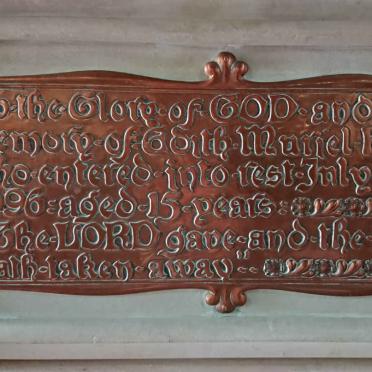 the Glory of GOD and
of Edith Muriel
entered into rest July
96 aged 15 years
The LORD gave and the
taken away"